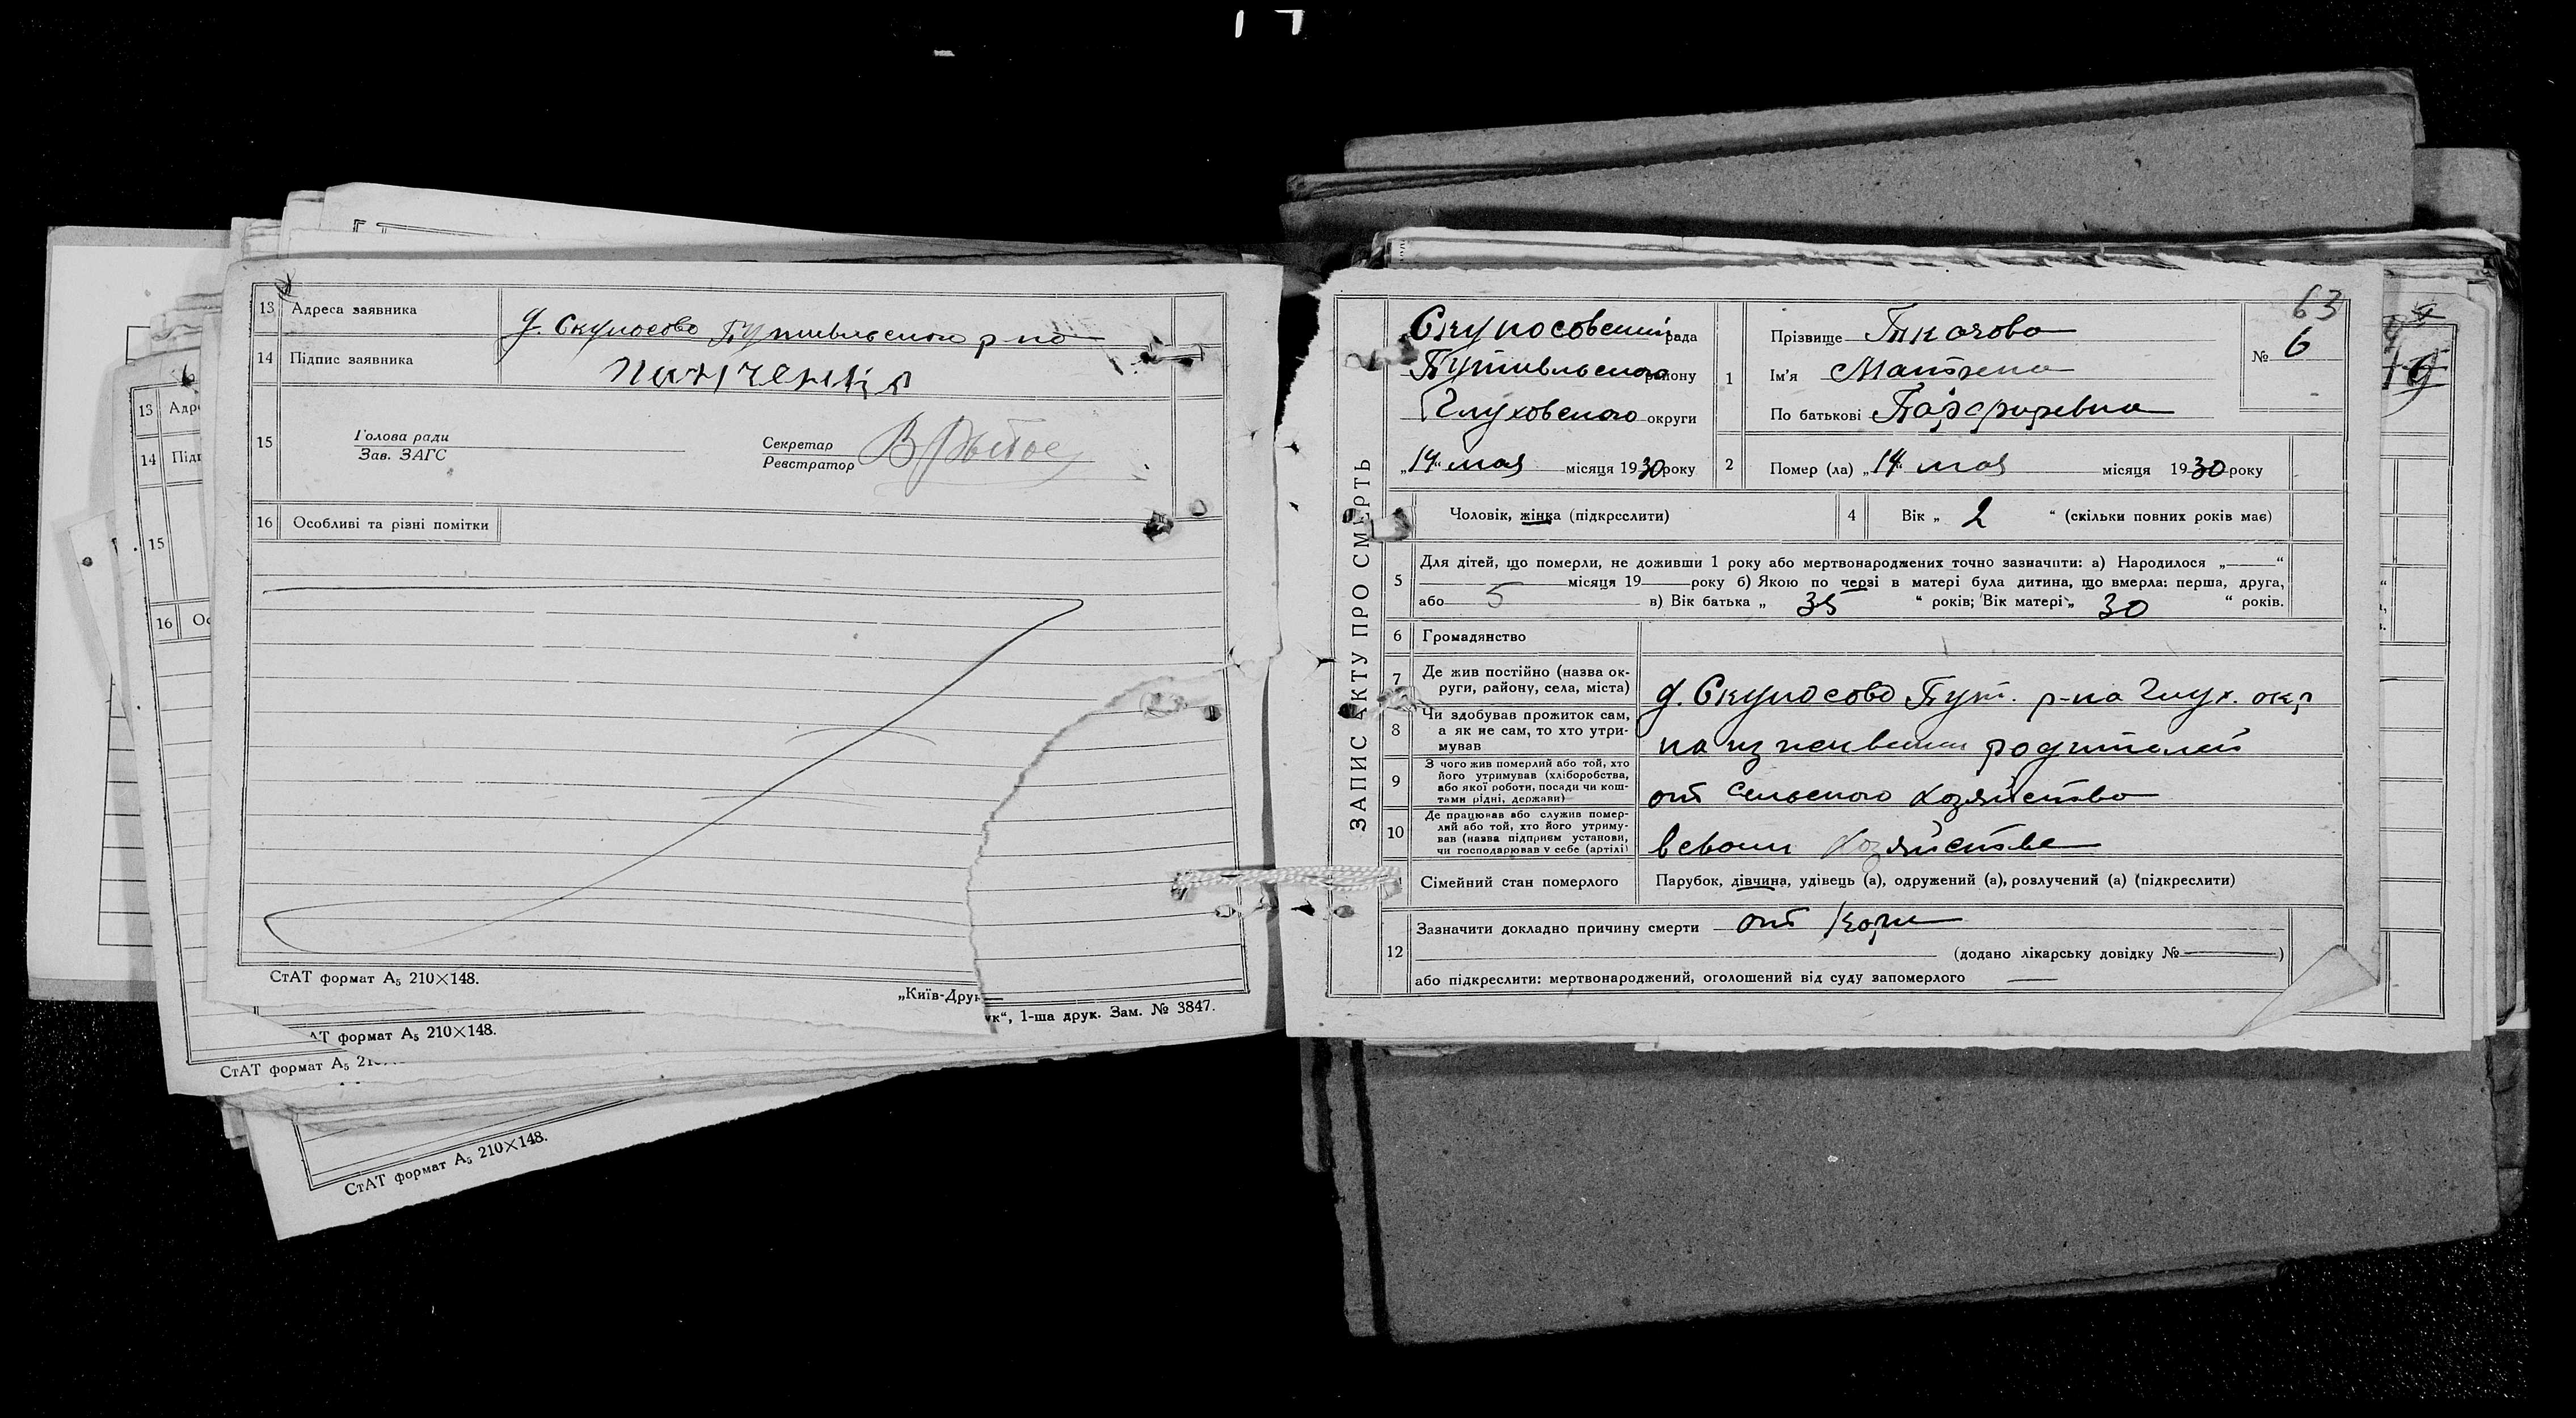 13 Адреса заявника д. Скуносово Путивльского р-на
14 Підпис заявника
15 Голова ради
Зав. ЗАГС
Секретар
Реєстратор
16 Особливі та різні помітки
СтАТ формат А₅ 210×148.
„Київ-Друк
ук“, 1-ша друк. Зам. № 3847.
АТ формат А₅ 210×148.
СтАТ формат А₅ 21
СтАТ формат А₅ 210×148.
13 Адр
14 Підп
15
16 Ос
63
ЗАПИС АКТУ ПРО СМЕРТЬ
Скуносовский рада
Путивльского району
Глуховского округи
„14“ мая місяця 1930 року
1 Прізвище Ткачова
Ім'я Матрена
По батькові Парфиревна
№ 6
2 Помер (ла) „14“ мая місяця 1930 року
Чоловік, жінка (підкреслити)
4 Вік „ 2 “ (скільки повних років має)
5 Для дітей, що померли, не доживши 1 року або мертвонароджених точно зазначити: а) Народилося „ “
місяця 19 року б) Якою по черзі в матері була дитина, що вмерла: перша, друга,
або 5 в) Вік батька „ 35 “ років; Вік матері „ 30 “ років.
6 Громадянство
7 Де жив постійно (назва ок-
руги, району, села, міста) д. Скуносово Пут. р-на Глух. окр
8 Чи здобував прожиток сам,
а як не сам, то хто утри-
мував на иждивении родителей
9 З чого жив померлий або той, хто
його утримував (хліборобства,
або якої роботи, посади чи кош-
тами рідні, держави) от сельского хозяйства
10 Де працював або служив помер-
лий або той, хто його утриму-
вав (назва підприєм установи,
чи господарював у себе (артілі) в своем хозяйстве
Сімейний стан померлого Парубок, дівчина, удівець (а), одружений (а), розлучений (а) (підкреслити)
12 Зазначити докладно причину смерти от кори
(додано лікарську довідку № )
або підкреслити: мертвонароджений, оголошений від суду запомерлого